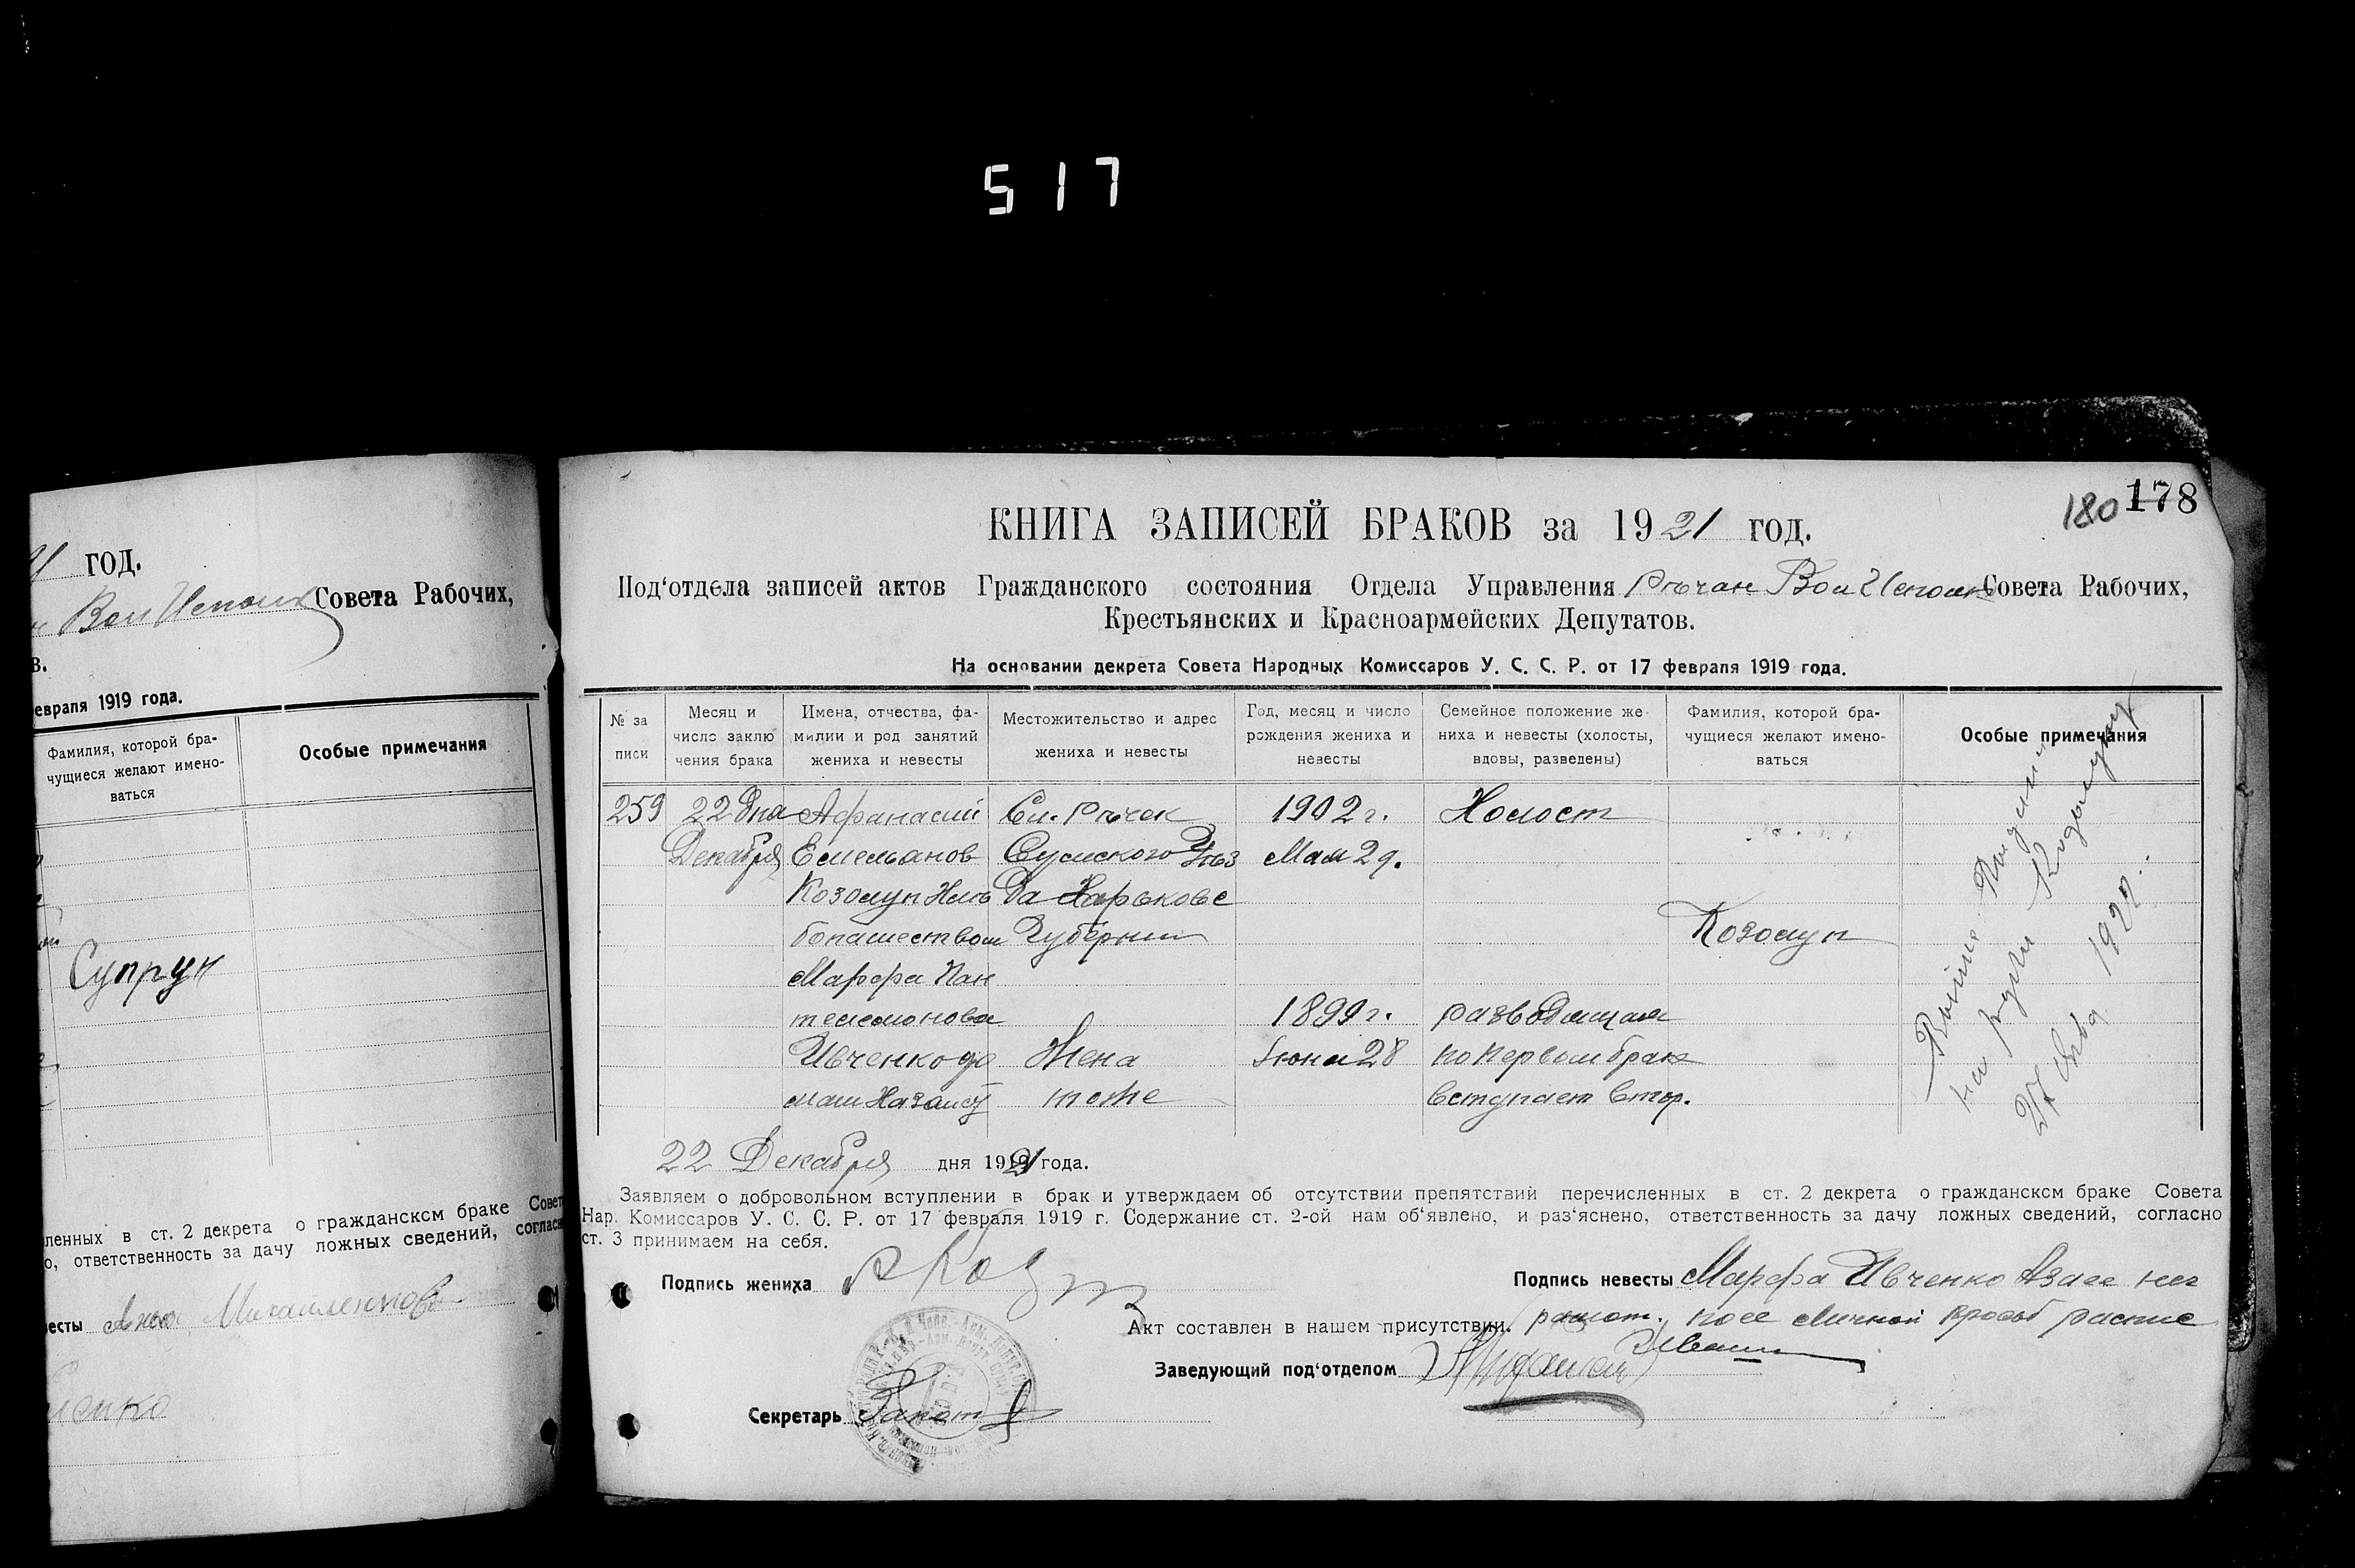 517
21 год.
Вол Исполк Совета Рабочих,
в.
евраля 1919 года.
Фамилия, которой бра-
чущиеся желают имено-
ваться
Особые примечания
Супрун
ленных в ст. 2 декрета о гражданском браке Совет
о, ответственность за дачу ложных сведений, согласн
весты Анна Михайленкова
180 178
КНИГА ЗАПИСЕЙ БРАКОВ за 1921 год.
Под'отдела записей актов Гражданского состояния Отдела Управления Речан Вол Исполк Совета Рабочих,
Крестьянских и Красноармейских Депутатов.
На основании декрета Совета Народных Комиссаров У. С. С. Р. от 17 февраля 1919 года.
№ за
писи
Месяц и
число заклю
чения брака
Имена, отчества, фа-
милии и род занятий
жениха и невесты
Местожительство и адрес
жениха и невесты
Год, месяц и число
рождения жениха и
невесты
Семейное положение же-
ниха и невесты (холосты,
вдовы, разведены)
Фамилия, которой бра-
чущиеся желают имено-
ваться
Особые примечания
259 22 дня Афанасий Сл. Речек 1902 г. Холост
Декабря Емельянов Сумского Уез Мая 29.
Козолуп Хле да Харькове
бопашеством Губернии Козолуп
Марфа Пан
телемонова 1899 г. разводящая
Ивченко до Жена Июня 28 по первом браке
маш Хазайст тоже вступает втор.
27 1922.
22 Декабря дня 1921 года.
Заявляем о добровольном вступлении в брак и утверждаем об отсутствии препятствий перечисленных в ст. 2 декрета о гражданском браке Совета
Нар. Комиссаров У. С. С. Р. от 17 февраля 1919 г. Содержание ст. 2-ой нам об'явлено, и раз'яснено, ответственность за дачу ложных сведений, согласно
ст. 3 принимаем на себя.
Подпись жениха
Подпись невесты Марфа Ивченко А за ее нег
Акт составлен в нашем присутствии. рамот. по ее личной просьб распис
Заведующий под'отделом
Секретарь